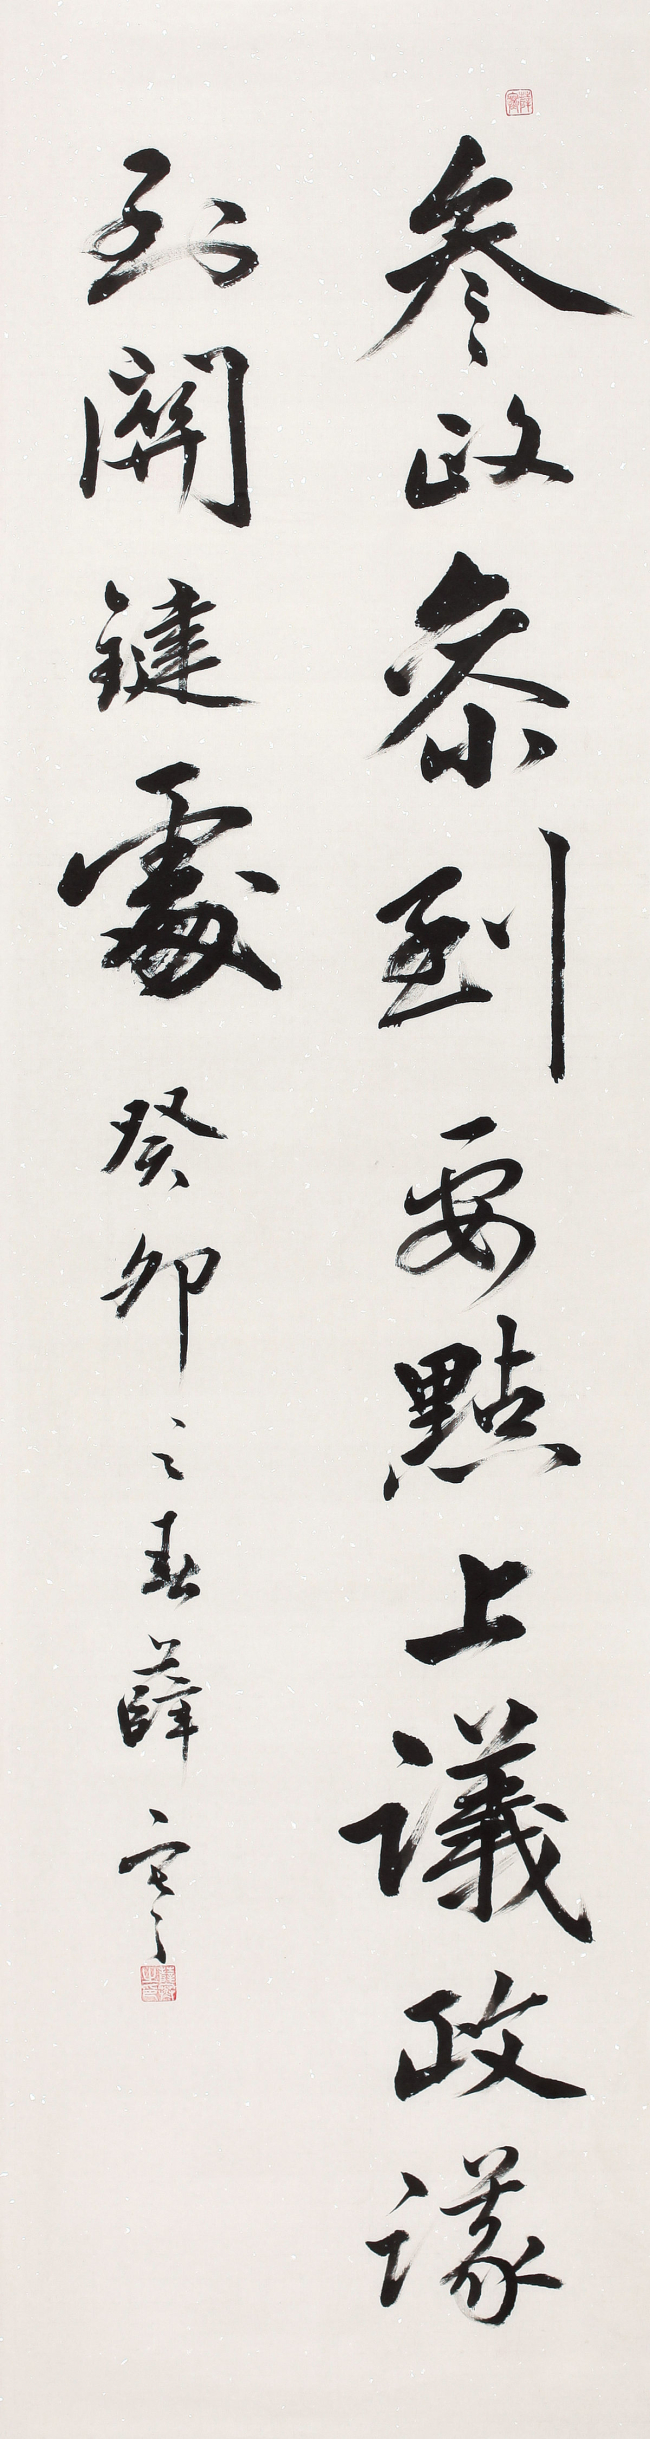 參政參到要點上議政議
到關鍵處癸卯之春薛寧